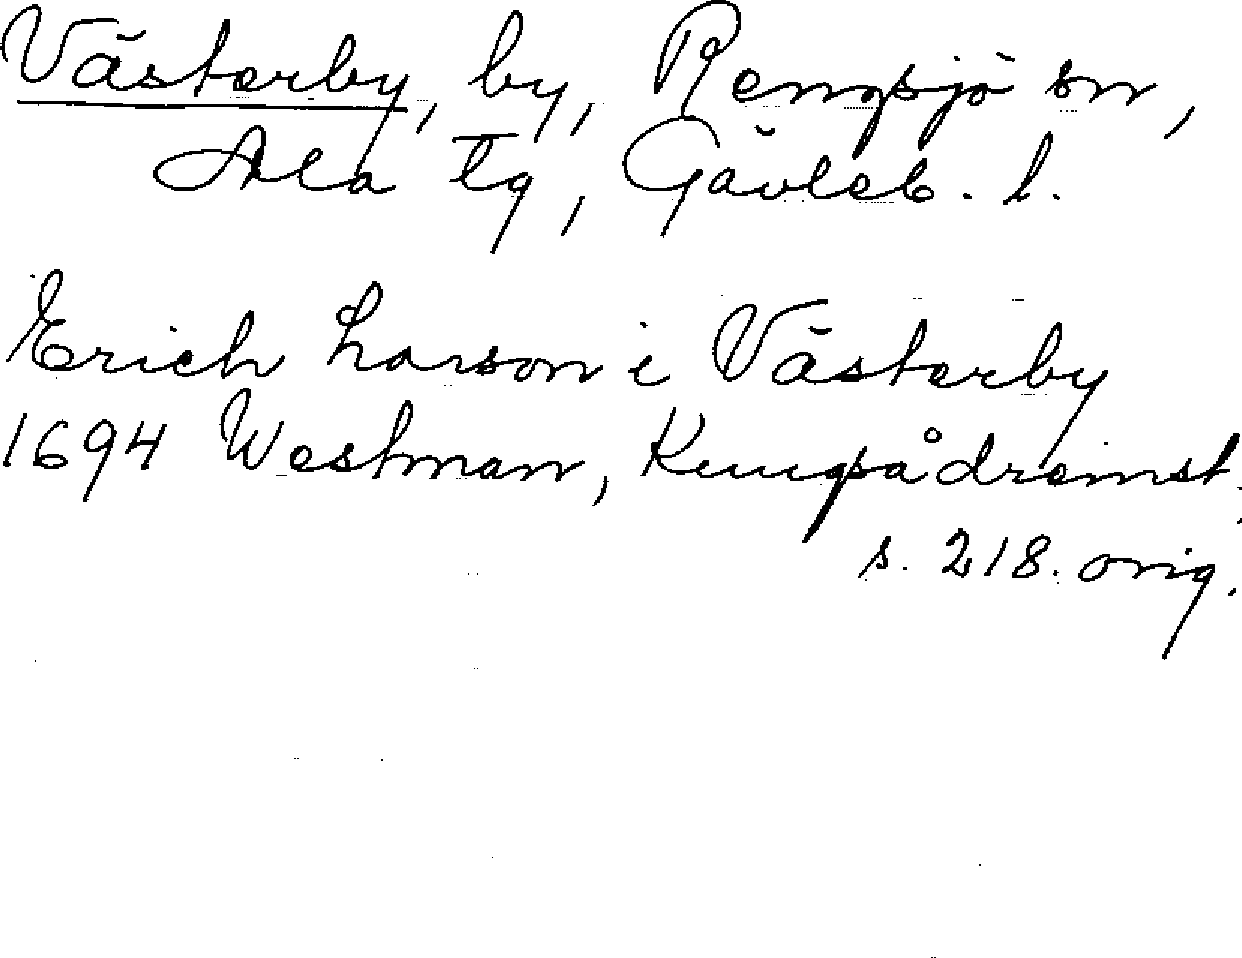 Västerby, by, Rengsjö sn,
Ala tg, Gävleb. l.
Erich Larson i Västerby
1694 Westman, Kungsådrarnst.
s. 218. orig.